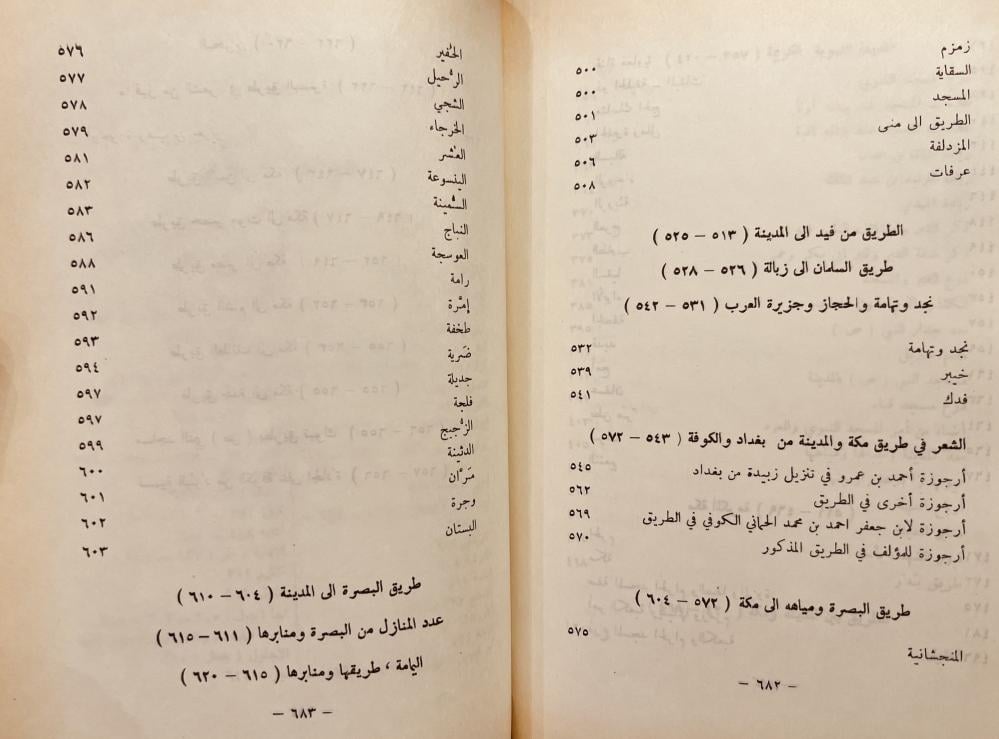 زمزم ٥٠٠
السقاية ٥٠٠
المسجد ٥٠١
الطريق الى منى ٥٠٣
المزدلفة ٥٠٦
عرفات ٥٠٨
الطريق من فيد الى المدينة ( ٥١٣ – ٥٢٥ )
طريق السلمان الى زبالة ( ٥٢٦ – ٥٢٨ )
نجد وتهامة والحجاز وجزيرة العرب ( ٥٣١ – ٥٤٢ )
نجد وتهامة ٥٣٢
خيبر ٥٣٩
فدك ٥٤١
الشعر في طريق مكة والمدينة من بغداد والكوفة ( ٥٤٣ – ٥٧٢ )
أرجوزة أحمد بن عمرو في تنزيل زبيدة من بغداد ٥٤٥
أرجوزة أخرى في الطريق ٥٦٢
أرجوزة لابن جعفر احمد بن محمد الحماني الكوفي في الطريق ٥٦٩
أرجوزة للمؤلف في الطريق المذكور ٥٧٠
طريق البصرة ومياهه الى مكة ( ٥٧٢ – ٦٠٤ )
المنجشانية ٥٧٥
– ٦٨٢ –
الحُفير ٥٧٦
الرُّحيل ٥٧٧
الشجي ٥٧٨
الخرجاء ٥٧٩
العُشر ٥٨١
الينسوعة ٥٨٢
السُّمينة ٥٨٣
النباج ٥٨٦
العوسجة ٥٨٨
رامة ٥٩١
إمَّرة ٥٩٢
طخفة ٥٩٣
ضَرية ٥٩٤
جديلة ٥٩٧
فلجة ٥٩٧
الزُّجيج ٥٩٩
الدثينة ٦٠٠
مَرَّان ٦٠١
وجرة ٦٠٢
البستان ٦٠٣
طريق البصرة الى المدينة ( ٦٠٤ – ٦١٠ )
عدد المنازل من البصرة ومنابرها ( ٦١١ – ٦١٥ )
اليامة ، طريقها ومنابرها ( ٦١٥ – ٦٢٠ )
– ٦٨٣ –